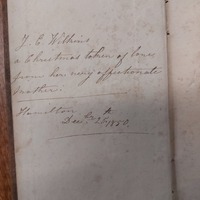 J. E. Wilkins
a Christmas token of love
from her very affectionate
mother:
Hamilton
Dec. 25 1850.